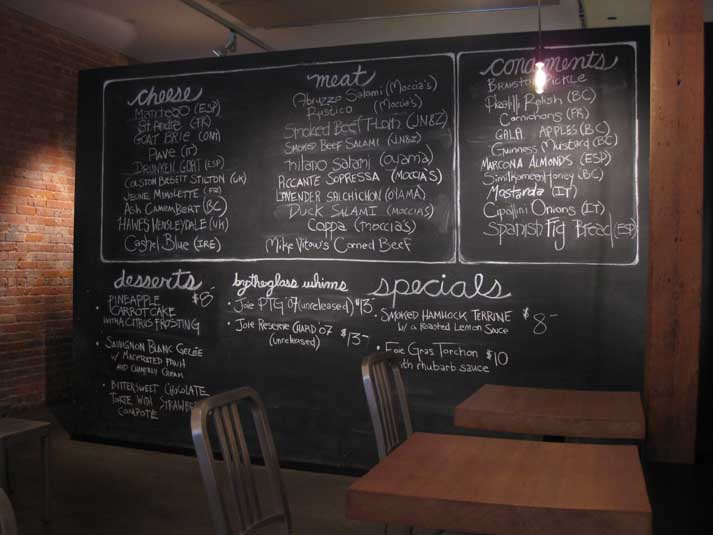 cheese
Manchego (ESP)
St André (FR)
Goat Brie (ONT)
Piave (IT)
Drunken Goat (ESP)
Colston Bassett Stilton (UK)
Jeune Mimolette (FR)
Ash Camembert (BC)
Hawes Wensleydale (UK)
Cashel Blue (IRE)
meat
Abruzzo Salami (Moccia's)
Rustico (Moccia's)
Smoked Beef (JN&Z)
Smoked Beef Salami (JN&Z)
milano salami (oyama)
Piccante Sopressa (Moccia's)
Lavender Salchichon (Oyama)
Duck Salami (Moccias)
Coppa (moccia's)
Mike Vitow's Corned Beef
condiments
Branston Pickle
Piccalilli Relish (BC)
Cornichons (FR)
Gala Apples (BC)
Guinness Mustard (BC)
Marcona Almonds (ESP)
Similkameen Honey (BC)
Mostarda (IT)
Cipollini Onions (IT)
Spanish Fig Bread (ESP)
desserts $8
• Pineapple
Carrot Cake
with a Citrus Frosting
• Sauvignon Blanc Gelée
w/ Macerated Fruit
and Chantilly Cream
• Bittersweet Chocolate
Torte with Strawberry
Compote
bytheglass whims
• Joie PTG '07 (unreleased) $13
• Joie Reserve Chard 07 $13
(unreleased)
specials
• Smoked Hamhock Terrine $8
w/ a Roasted Lemon Sauce
• Foie Gras Torchon $10
with rhubarb sauce